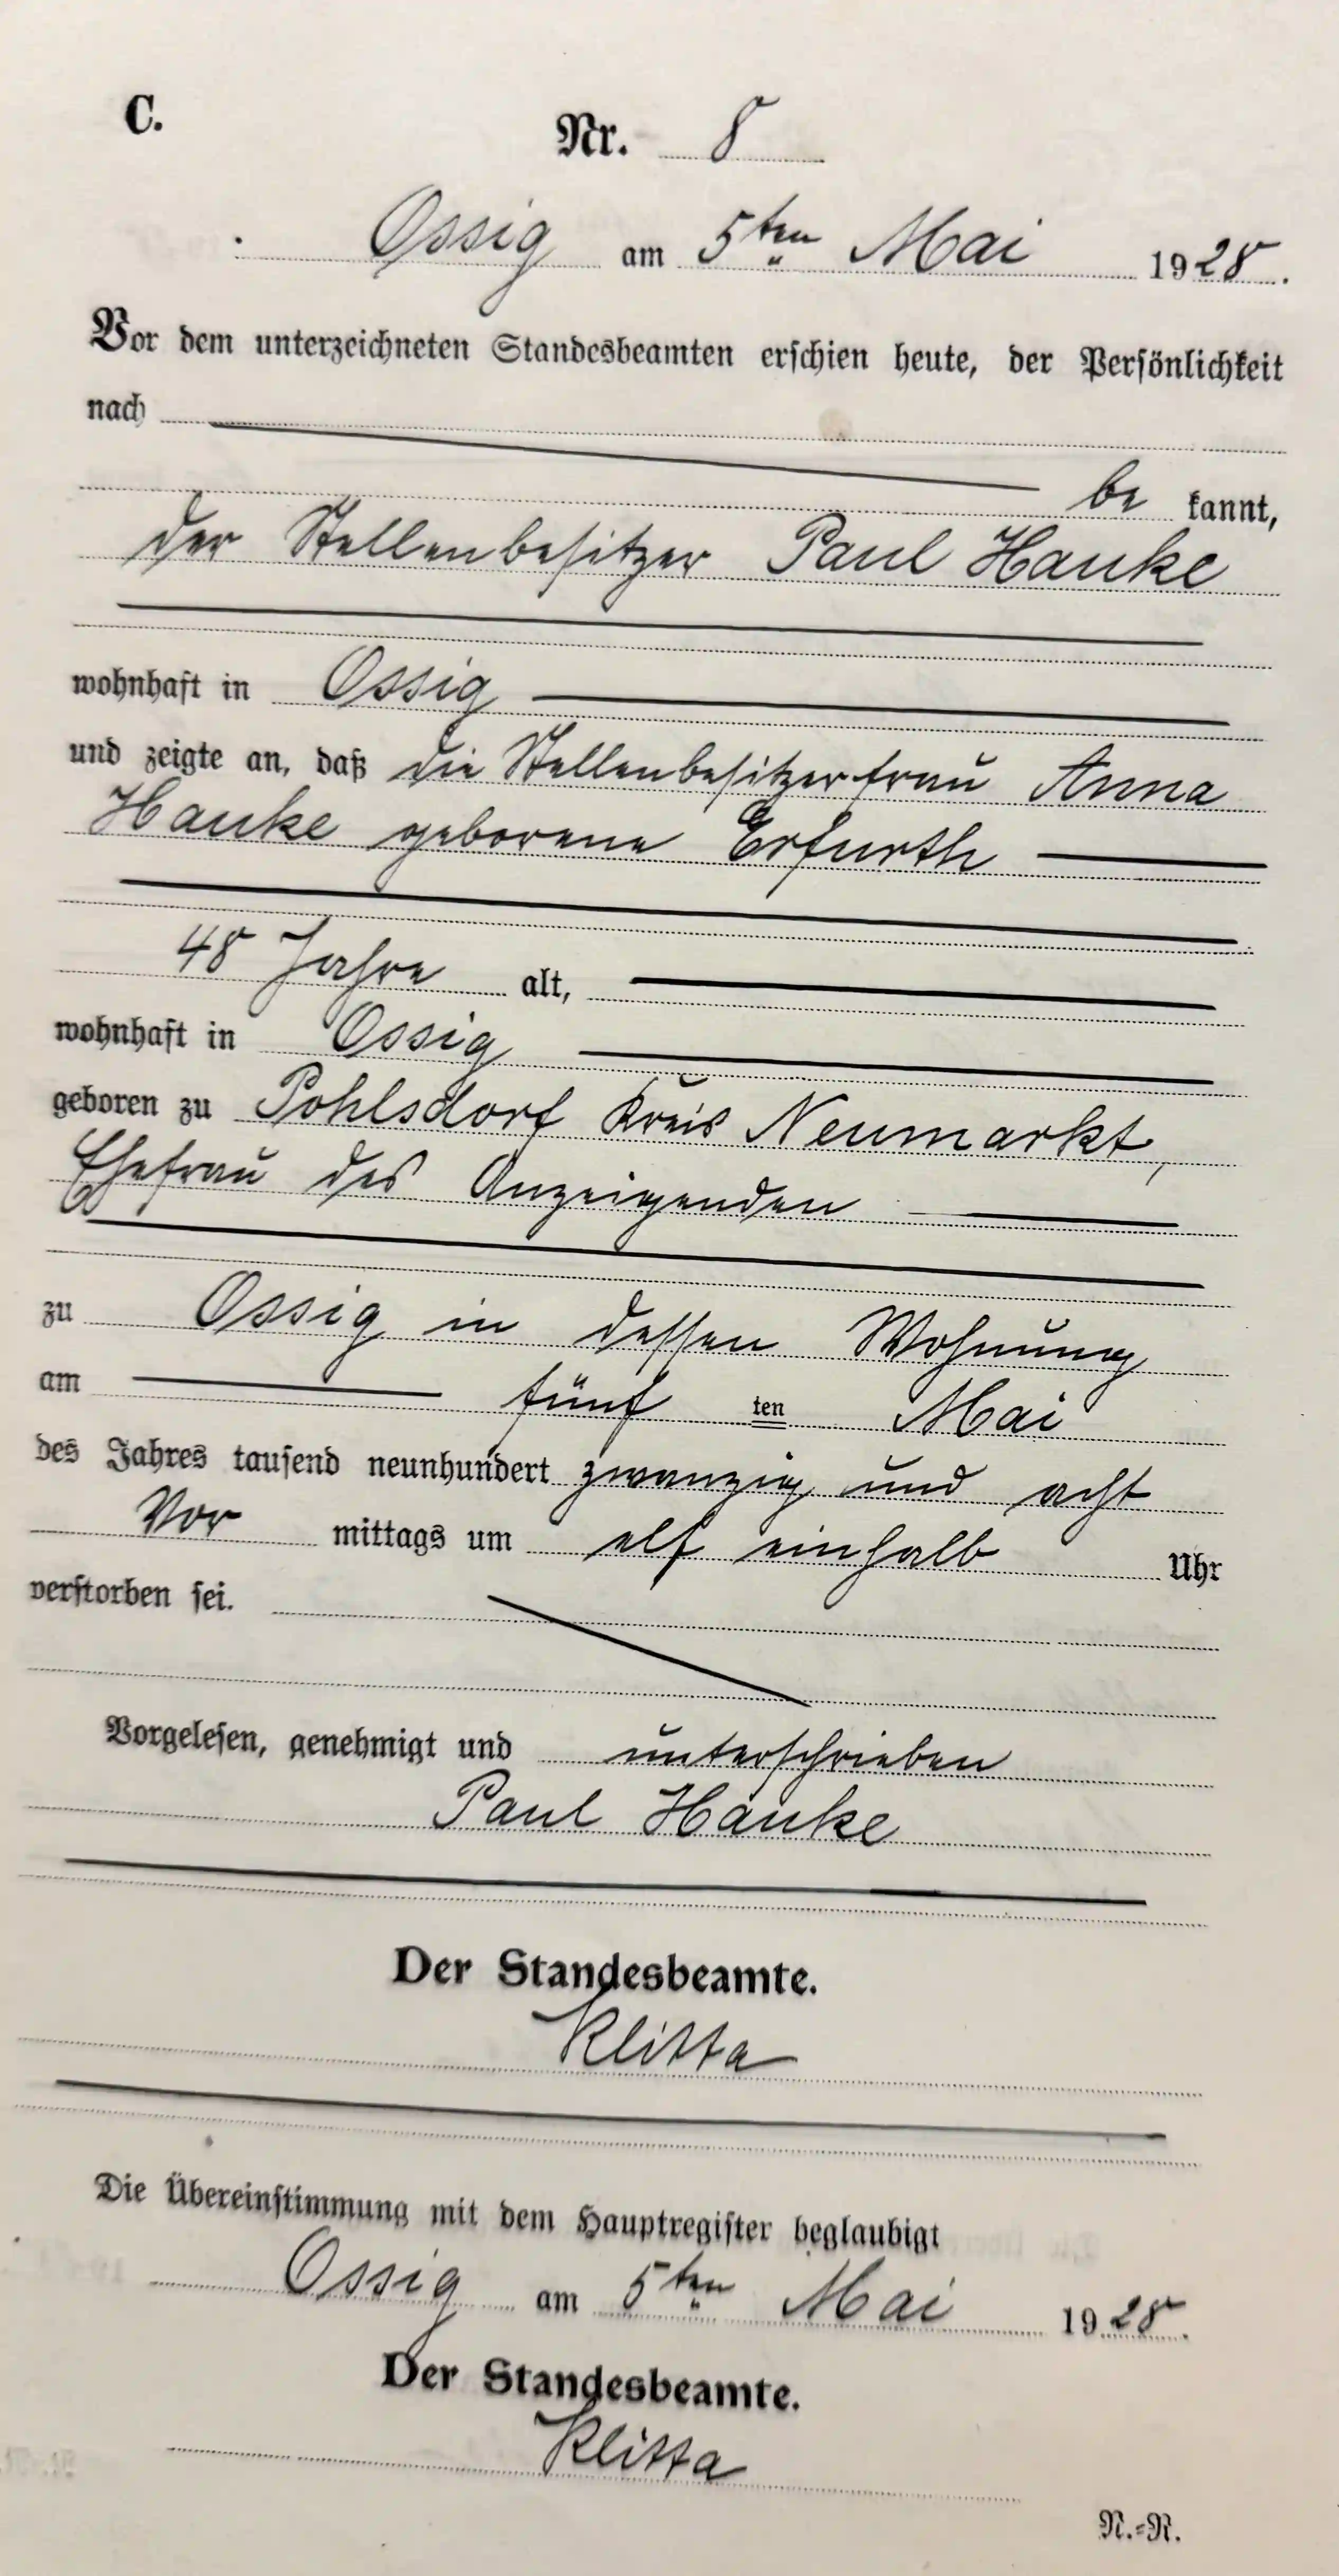 C.
Nr. 8
Ossig am 5ten Mai 1928.
Vor dem unterzeichneten Standesbeamten erschien heute, der Persönlichkeit
nach
be kannt,
der Stellenbesitzer Paul Hanke
wohnhaft in Ossig
und zeigte an, daß die Stellenbesitzerfrau Anna
Hanke geborene Erfurth
48 Jahre alt,
wohnhaft in Ossig
geboren zu Pohlsdorf Kreis Neumarkt,
Ehefrau des Anzeigenden
zu Ossig in dessen Wohnung
am fünf ten Mai
des Jahres tausend neunhundert zwanzig und acht
Vor mittags um elf einhalb Uhr
verstorben sei.
Vorgelesen, genehmigt und unterschrieben
Paul Hanke
Der Standesbeamte.
Klitta
Die Übereinstimmung mit dem Hauptregister beglaubigt
Ossig am 5ten Mai 1928.
Der Standesbeamte.
Klitta
N.=R.